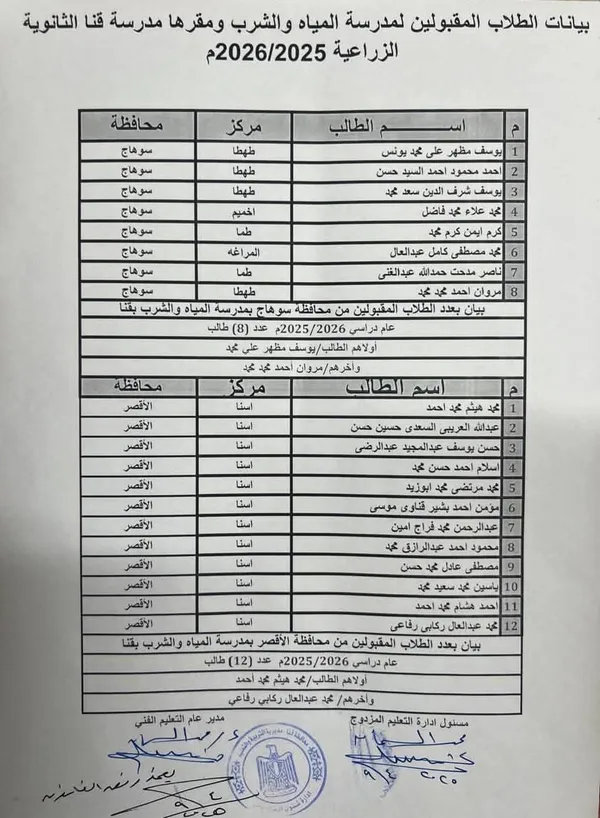 بيانات الطلاب المقبولين لمدرسة المياه والشرب ومقرها مدرسة قنا الثانوية
الزراعية 2026/2025م
م اســـــم الطالب مركز محافظة
1 يوسف مظهر على محمد يونس طهطا سوهاج
2 احمد محمود احمد السيد حسن طهطا سوهاج
3 يوسف شرف الدين سعد محمد طهطا سوهاج
4 محمد علاء محمد فاضل اخميم سوهاج
5 كرم ايمن كرم محمد طما سوهاج
6 محمد مصطفى كامل عبدالعال المراغه سوهاج
7 ناصر مدحت حمدالله عبدالغنى طما سوهاج
8 مروان احمد محمد محمد طهطا سوهاج
بيان بعدد الطلاب المقبولين من محافظة سوهاج بمدرسة المياه والشرب بقنا
عام دراسي 2025/2026م عدد (8) طالب
أولاهم الطالب/يوسف مظهر على محمد
وأخرهم/مروان أحمد محمد محمد
م اسم الطالب مركز محافظة
1 محمد هيثم محمد احمد اسنا الأقصر
2 عبدالله العريبى السعدى حسين حسن اسنا الأقصر
3 حسن يوسف عبدالمجيد عبدالرضى اسنا الأقصر
4 اسلام احمد حسن محمد اسنا الأقصر
5 محمد مرتضى محمد ابوزيد اسنا الأقصر
6 مؤمن احمد بشير قناوى موسى اسنا الأقصر
7 عبدالرحمن محمد فراج امين اسنا الأقصر
8 محمود احمد عبدالرازق محمد اسنا الأقصر
9 مصطفى عادل محمد حسن اسنا الأقصر
10 ياسين محمد سعيد محمد اسنا الأقصر
11 احمد هشام محمد احمد اسنا الأقصر
12 محمد عبدالعال ركابى رفاعى اسنا الأقصر
بيان بعدد الطلاب المقبولين من محافظة الأقصر بمدرسة المياه والشرب بقنا
عام دراسي 2025/2026م عدد (12) طالب
أولاهم الطالب/محمد هيثم محمد أحمد
وأخرهم/ محمد عبدالعال ركابي رفاعي
مسئول ادارة التعليم المزدوج
مدير عام التعليم الفني